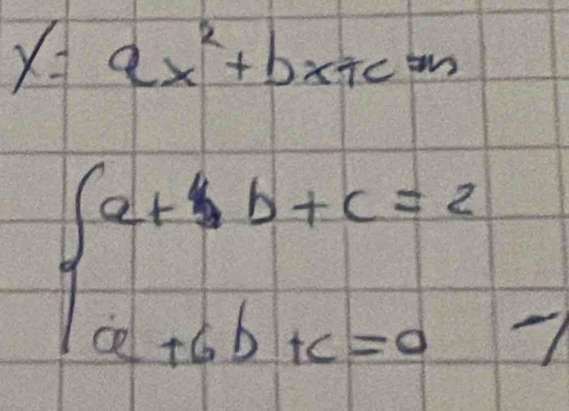 y = ax² + bx + c
a + b + c = 2
a + 6b + c = 0 -